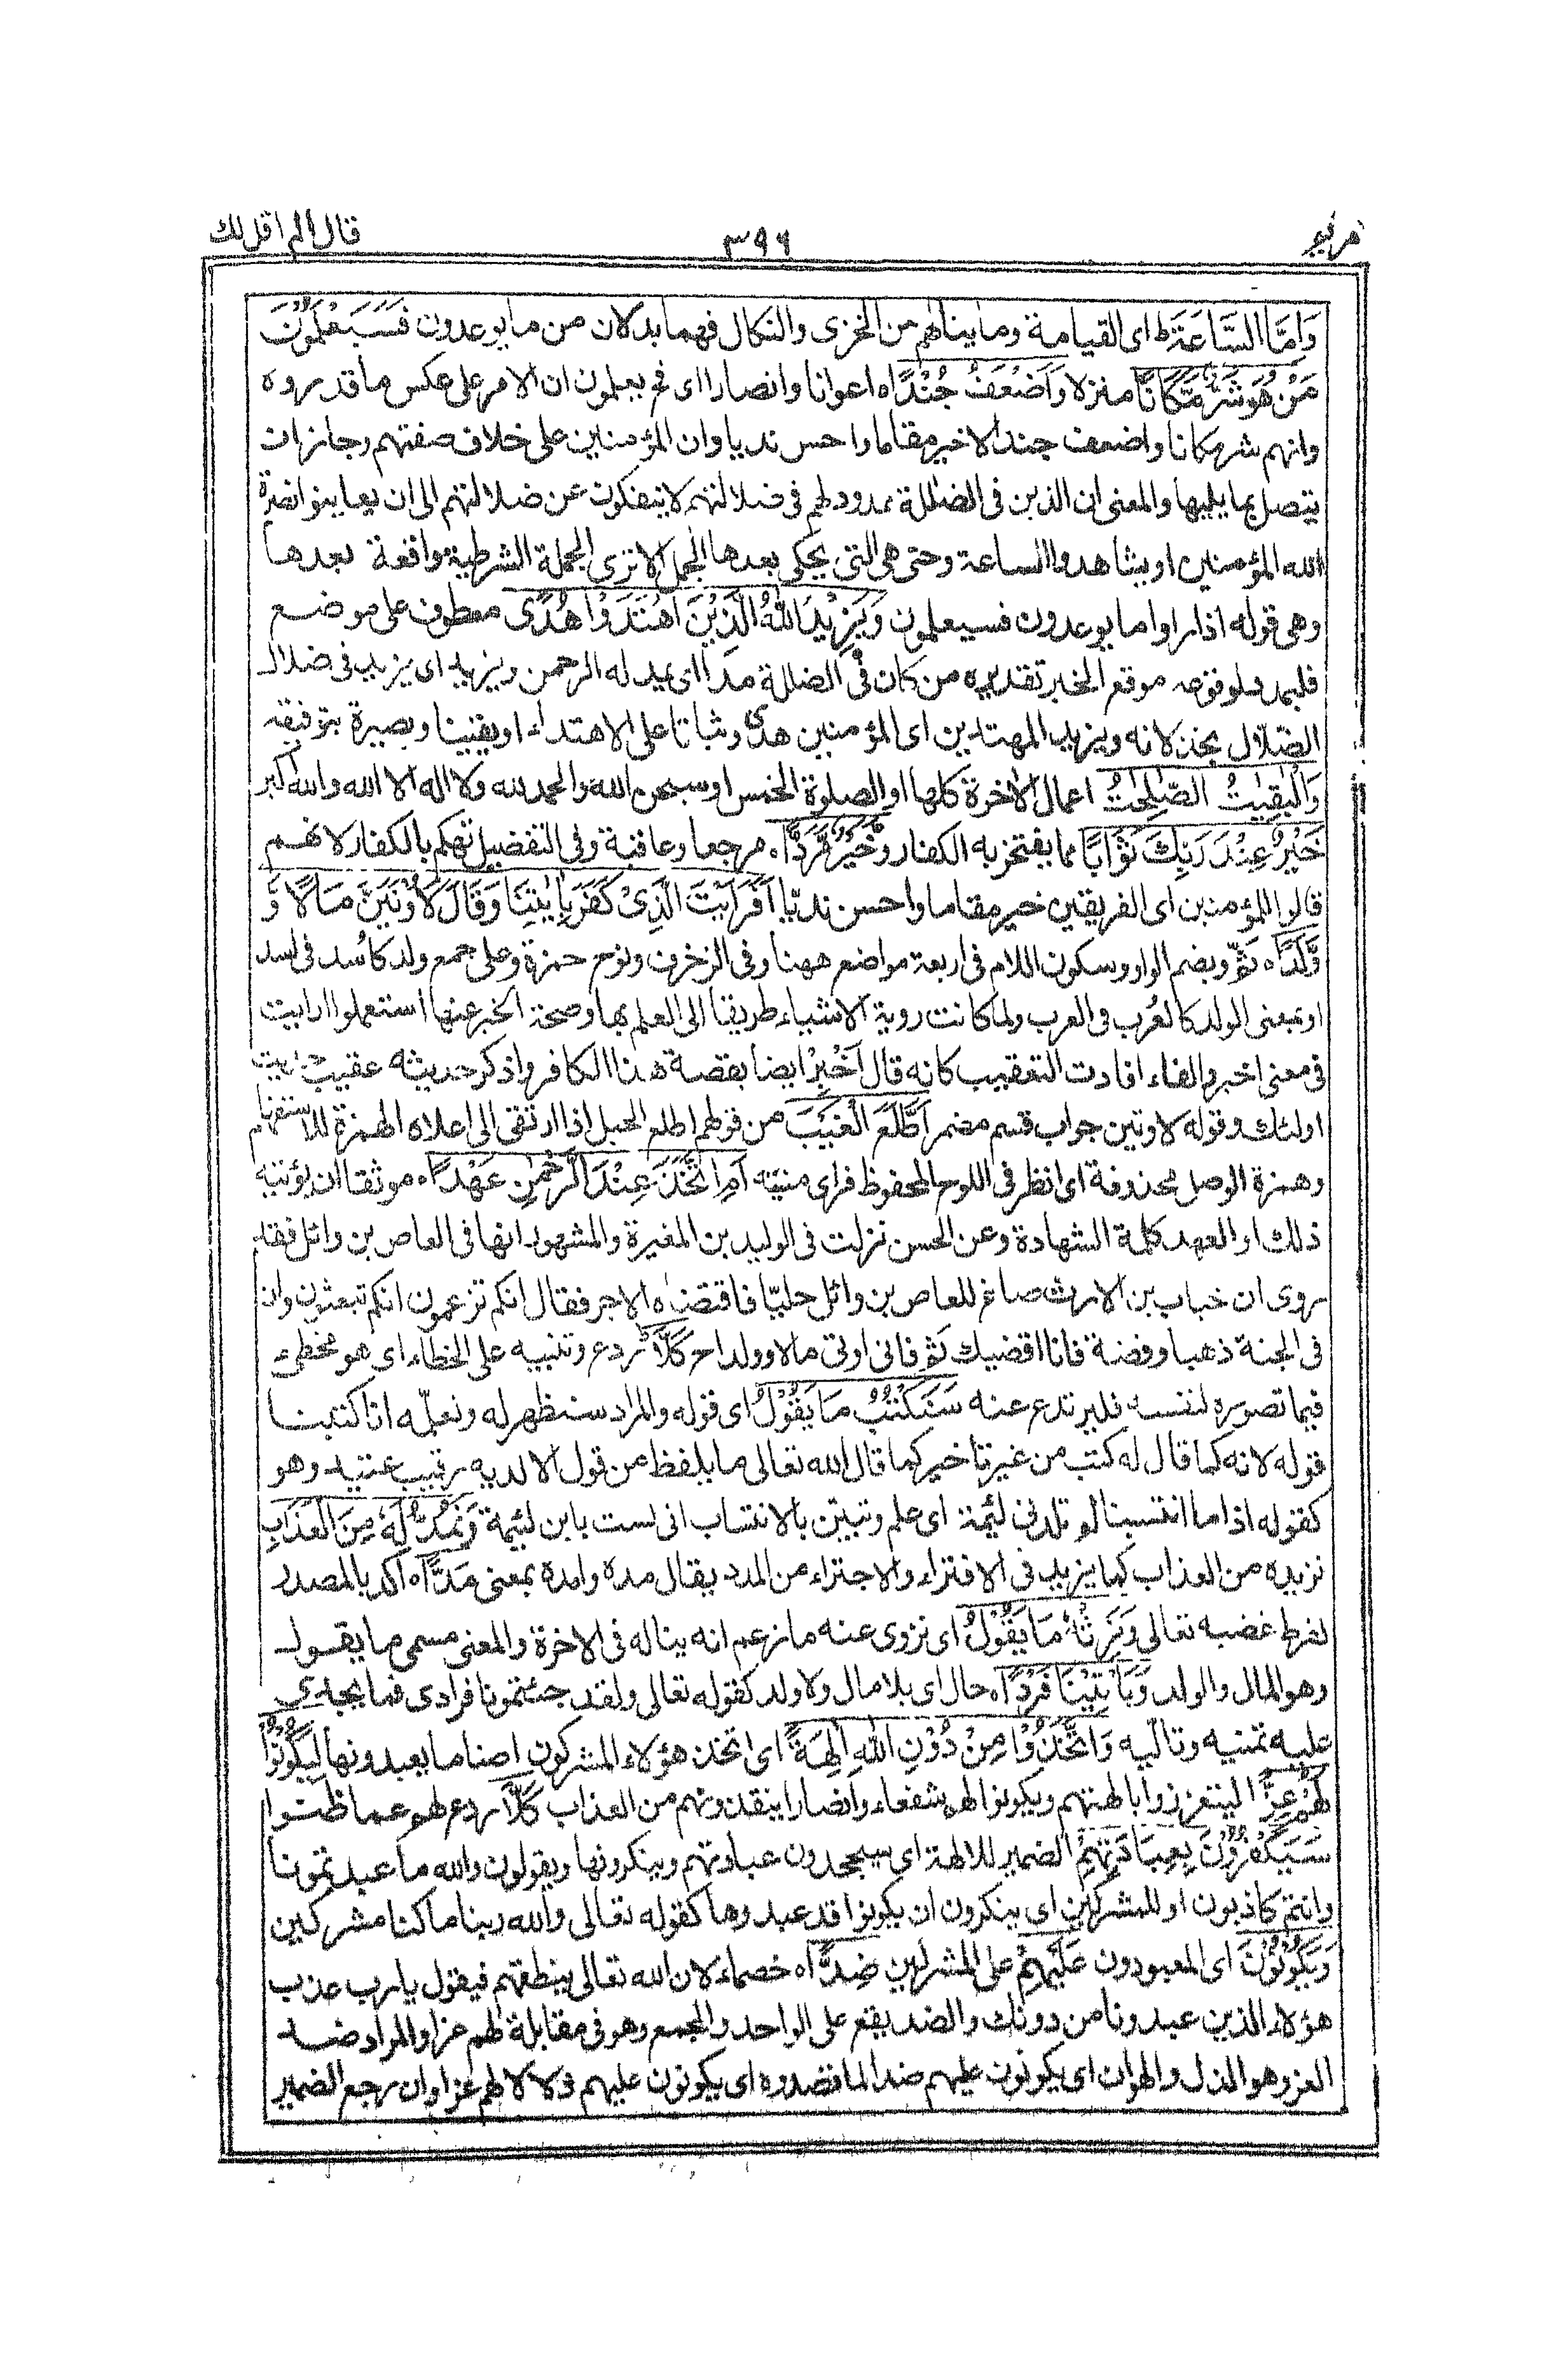 مريم ٣٩٦ قال الم اقل لك
وَاِمَّا السَّاعَةَ ط اى القيامة وما ينالهم من الخزى والنكال فهما بدلان من ما يوعدون فَسَيَعْلَمُوْنَ
مَنْ هُوَ شَرٌّ مَّكَانًا منزلا وَاَضْعَفُ جُنْدًا ه اعوانا وانصارا اى فح يعلمون ان الامر على عكس ما قدروه
وانهم شر مكانا واضعف جندا لا خير مقاما واحسن نديا وان المؤمنين على خلاف صفتهم وجاز ان
يتصل بما يليها والمعنى ان الذين فى الضللة ممدود لهم فى ضلالتهم لا ينفكون عن ضلالتهم الى ان يعاينوا نصرة
الله المؤمنين او يشاهدوا الساعة وحتى هى التى يحكى بعدها الجمل الا ترى الجملة الشرطية واقعة بعدها
وهى قوله اذا راوا ما يوعدون فسيعلمون وَيَزِيْدُ اللّٰهُ الَّذِيْنَ اهْتَدَوْا هُدًى معطوف على موضع
فليمدد لوقوعه موقع الخبر تقديره من كان فى الضللة مدا اى يمد له الرحمن ويزيد اى يزيد فى ضلال
الضلال بخذلانه ويزيد المهتدين اى المؤمنين هدى وثباتا على الاهتداء او يقينا وبصيرة بتوفيقه
وَالْبٰقِيٰتُ الصّٰلِحٰتُ اعمال الاخرة كلها او الصلوة الخمس او سبحن الله والحمد لله ولا اله الا الله والله اكبر
خَيْرٌ عِنْدَ رَبِّكَ ثَوَابًا مما يفتخر به الكفار وَّخَيْرٌ مَّرَدًّا ه مرجعا وعاقبة وفى التفضيل تهكم بالكفار لانهم
قالوا للمؤمنين اى الفريقين خير مقاما واحسن نديّا اَفَرَاَيْتَ الَّذِىْ كَفَرَ بِاٰيٰتِنَا وَقَالَ لَاُوْتَيَنَّ مَالًا وَّ
وَّلَدًا ه ثمّ وبضم الواو وسكون اللام فى اربعة مواضع ههنا وفى الزخرف ونوح حمزة وعلى جمع ولد كاُسد فى اسد
او بمعنى الولد كالعُرب فى العرب ولما كانت روية الاشياء طريقا الى العلم بها وصحة الخبر عنها استعملوا ارايت
فى معنى اخبر والفاء افادت التعقيب كانه قال اَخْبِرْ ايضا بقصة هذا الكافر واذكر حديثه عقيب حديث
اولئك وقوله لاوتين جواب قسم مضمر اَطَّلَعَ الْغَيْبَ من قولهم اطلع الجبل اذا ارتقى الى اعلاه الهمزة للاستفهام
وهمزة الوصل محذوفة اى انظر فى اللوح المحفوظ فراى منيته اَمِ اتَّخَذَ عِنْدَ الرَّحْمٰنِ عَهْدًا ه موثقا ان يؤتيه
ذلك او العهد كلمة الشهادة وعن الحسن نزلت فى الوليد بن المغيرة والمشهور انها فى العاص بن وائل فقد
روى ان خباب بن الارت صاغ للعاص بن وائل حليّا فاقتضاه الاجر فقال انكم تزعمون انكم تبعثون وان
فى الجنة ذهبا وفضة فانا اقضيك ثم فانى اوتى مالا وولدا ح كَلَّا ردع وتنبيه على الخطاء اى هو مخطئ
فيما تصوره لنفسه فليرتدع عنه سَنَكْتُبُ مَا يَقُوْلُ اى قوله والمراد سنظهر له ونعلمه انا كتبنا
قوله لانه كما قال له كتب من غير تاخير كما قال الله تعالى ما يلفظ من قول الا لديه رقيب عتيد وهو
كقوله اذا ما انتسبنا لم تلدنى لئيمة اى علم وتبيّن بالانتساب انى لست بابن لئيمة وَنَمُدُّ لَهٗ مِنَ الْعَذَابِ
نزيده من العذاب كما يزيد فى الافتراء والاجتراء من المدد يقال مده وامده بمعنى مَدًّا ه اكد بالمصدر
لفرط غضبه تعالى وَنَرِثُهٗ مَا يَقُوْلُ اى نزوى عنه ما زعم انه يناله فى الاخرة والمعنى مسمى ما يقول
وهو المال والولد وَيَاْتِيْنَا فَرْدًا ه حال اى بلا مال ولا ولد كقوله تعالى ولقد جئتمونا فرادى فما يجدى
عليه تمنيه وتاليه وَاتَّخَذُوْا مِنْ دُوْنِ اللّٰهِ اٰلِهَةً اى اتخذ هؤلاء المشركون اصناما يعبدونها لِّيَكُوْنُوْا
لَهُمْ عِزًّا ليتعززوا بالهتهم ويكونوا لهم شفعاء وانصارا ينقذونهم من العذاب كَلَّا ردع لهم عما ظنوا
سَيَكْفُرُوْنَ بِعِبَادَتِهِمْ الضمير للالهة اى سيجحدون عبادتهم وينكرونها ويقولون والله ما عبدتمونا
وانتم كاذبون او للمشركين اى ينكرون ان يكونوا قد عبدوها كقوله تعالى والله ربنا ما كنا مشركين
وَيَكُوْنُوْنَ اى المعبودون عَلَيْهِمْ على المشركين ضِدًّا ه خصماء لان الله تعالى ينطقهم فيقول يارب عذب
هؤلاء الذين عبدونا من دونك والضد يقع على الواحد والجمع وهو فى مقابلة لهم عزا والمراد ضد
العز وهو الذل والهوان اى يكونون عليهم ضدا لما قصدوه اى يكونون عليهم ذلا لا لهم عزا وان رجع الضمير